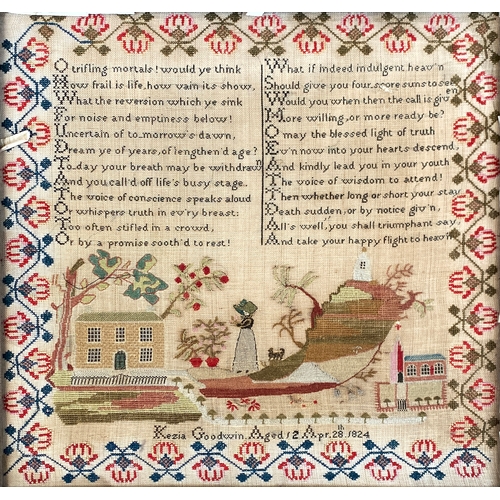 O trifling mortals! would ye think
How frail is life, how vain its show,
What the reversion which ye sink
For noise and emptiness below!
Uncertain of to-morrow's dawn,
Dream ye of years, of lengthen'd age?
To-day your breath may be withdrawn
And you, call'd off life's busy stage.
The voice of conscience speaks aloud
Or whispers truth in ev'ry breast:
Too often stifled in a crowd,
Or by a promise sooth'd to rest!
What if indeed indulgent heav'n
Should give you four score suns to see
Would you when then the call is given
More willing, or more ready be?
O may the blessed light of truth
Ev'n now into your hearts descend,
And kindly lead you in your youth
The voice of wisdom to attend!
Then whether long or short your stay
Death sudden, or by notice giv'n,
"All's well", you shall triumphant say,
And take your happy flight to heav'n
Kezia Goodwin. Aged 12 Apr. 28th 1824